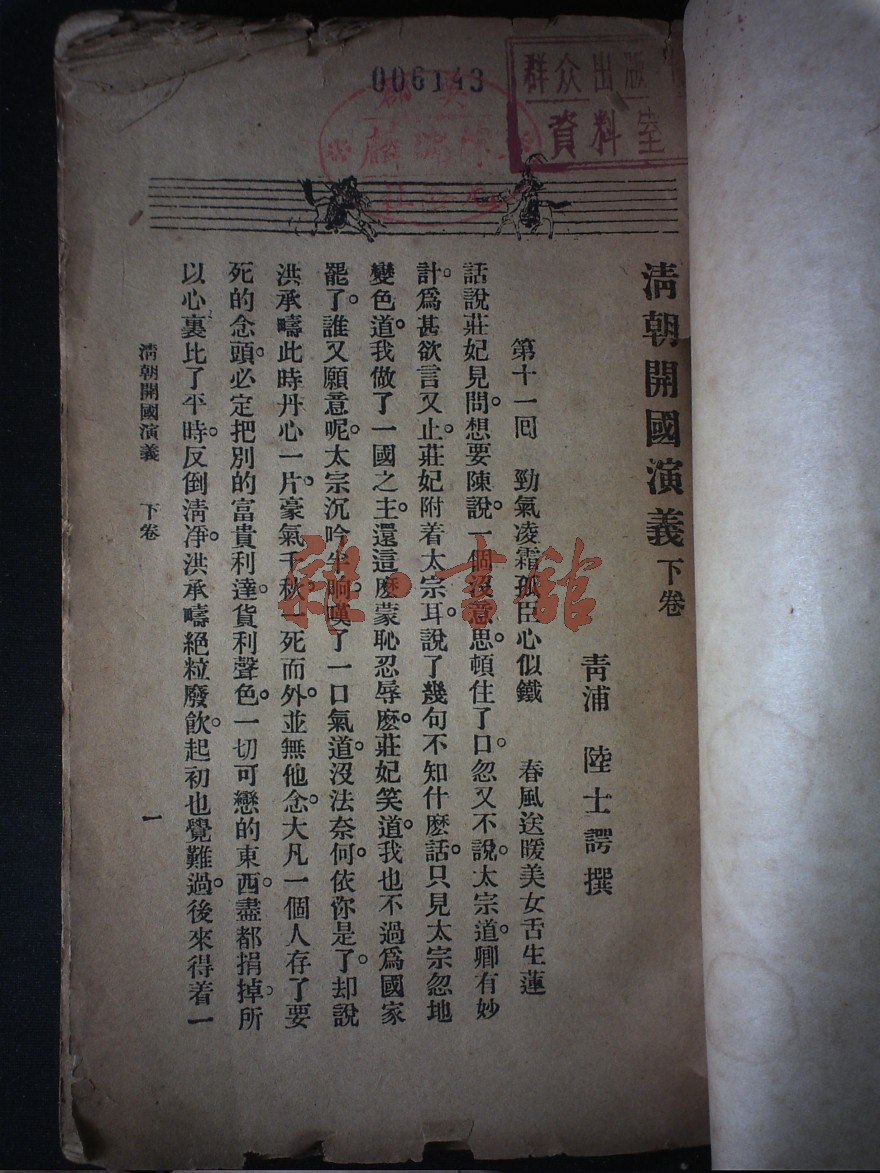 006143
群众出版
資料室
清朝開國演義 下卷
青浦 陸士諤 撰
第十一回 勁氣凌霜孤臣心似鐵 春風送暖美女舌生蓮
話說莊妃見問。想要陳說。一個沒意思。頓住了口。忽又不說。太宗道。卿有妙
計。爲甚欲言又止。莊妃附着太宗耳。說了幾句不知什麽話。只見太宗忽地
變色道。我做了一國之主。還這麽蒙恥忍辱麽。莊妃笑道。我也不過爲國家
罷了。誰又願意呢。太宗沉吟半晌。嘆了一口氣道。沒法奈何。依你是了。却說
洪承疇此時丹心一片。豪氣千秋。一死而外。並無他念。大凡一個人存了要
死的念頭。必定把別的富貴利達。貨利聲色。一切可戀的東西。盡都捐掉。所
以心裏比了平時。反倒清凈。洪承疇絕粒廢飲。起初也覺難過。後來得着一
清朝開國演義 下卷 一
雜·書館